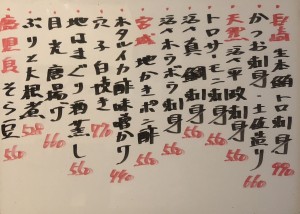 長崎 生本鮪トロ刺身 990
かつお刺身・土佐造り 660
天然 活〆平政刺身 550
トロサーモン刺身 550
活〆真鯛刺身 550
活〆ホウボウ刺身 550
宮城 地かきポン酢 550
ホタルイカ酢味噌かけ 440
穴子白焼き 770
地はまぐり酒蒸し 550
目光唐揚げ 550
ぶりと大根煮 508
鹿児島 そら豆 550